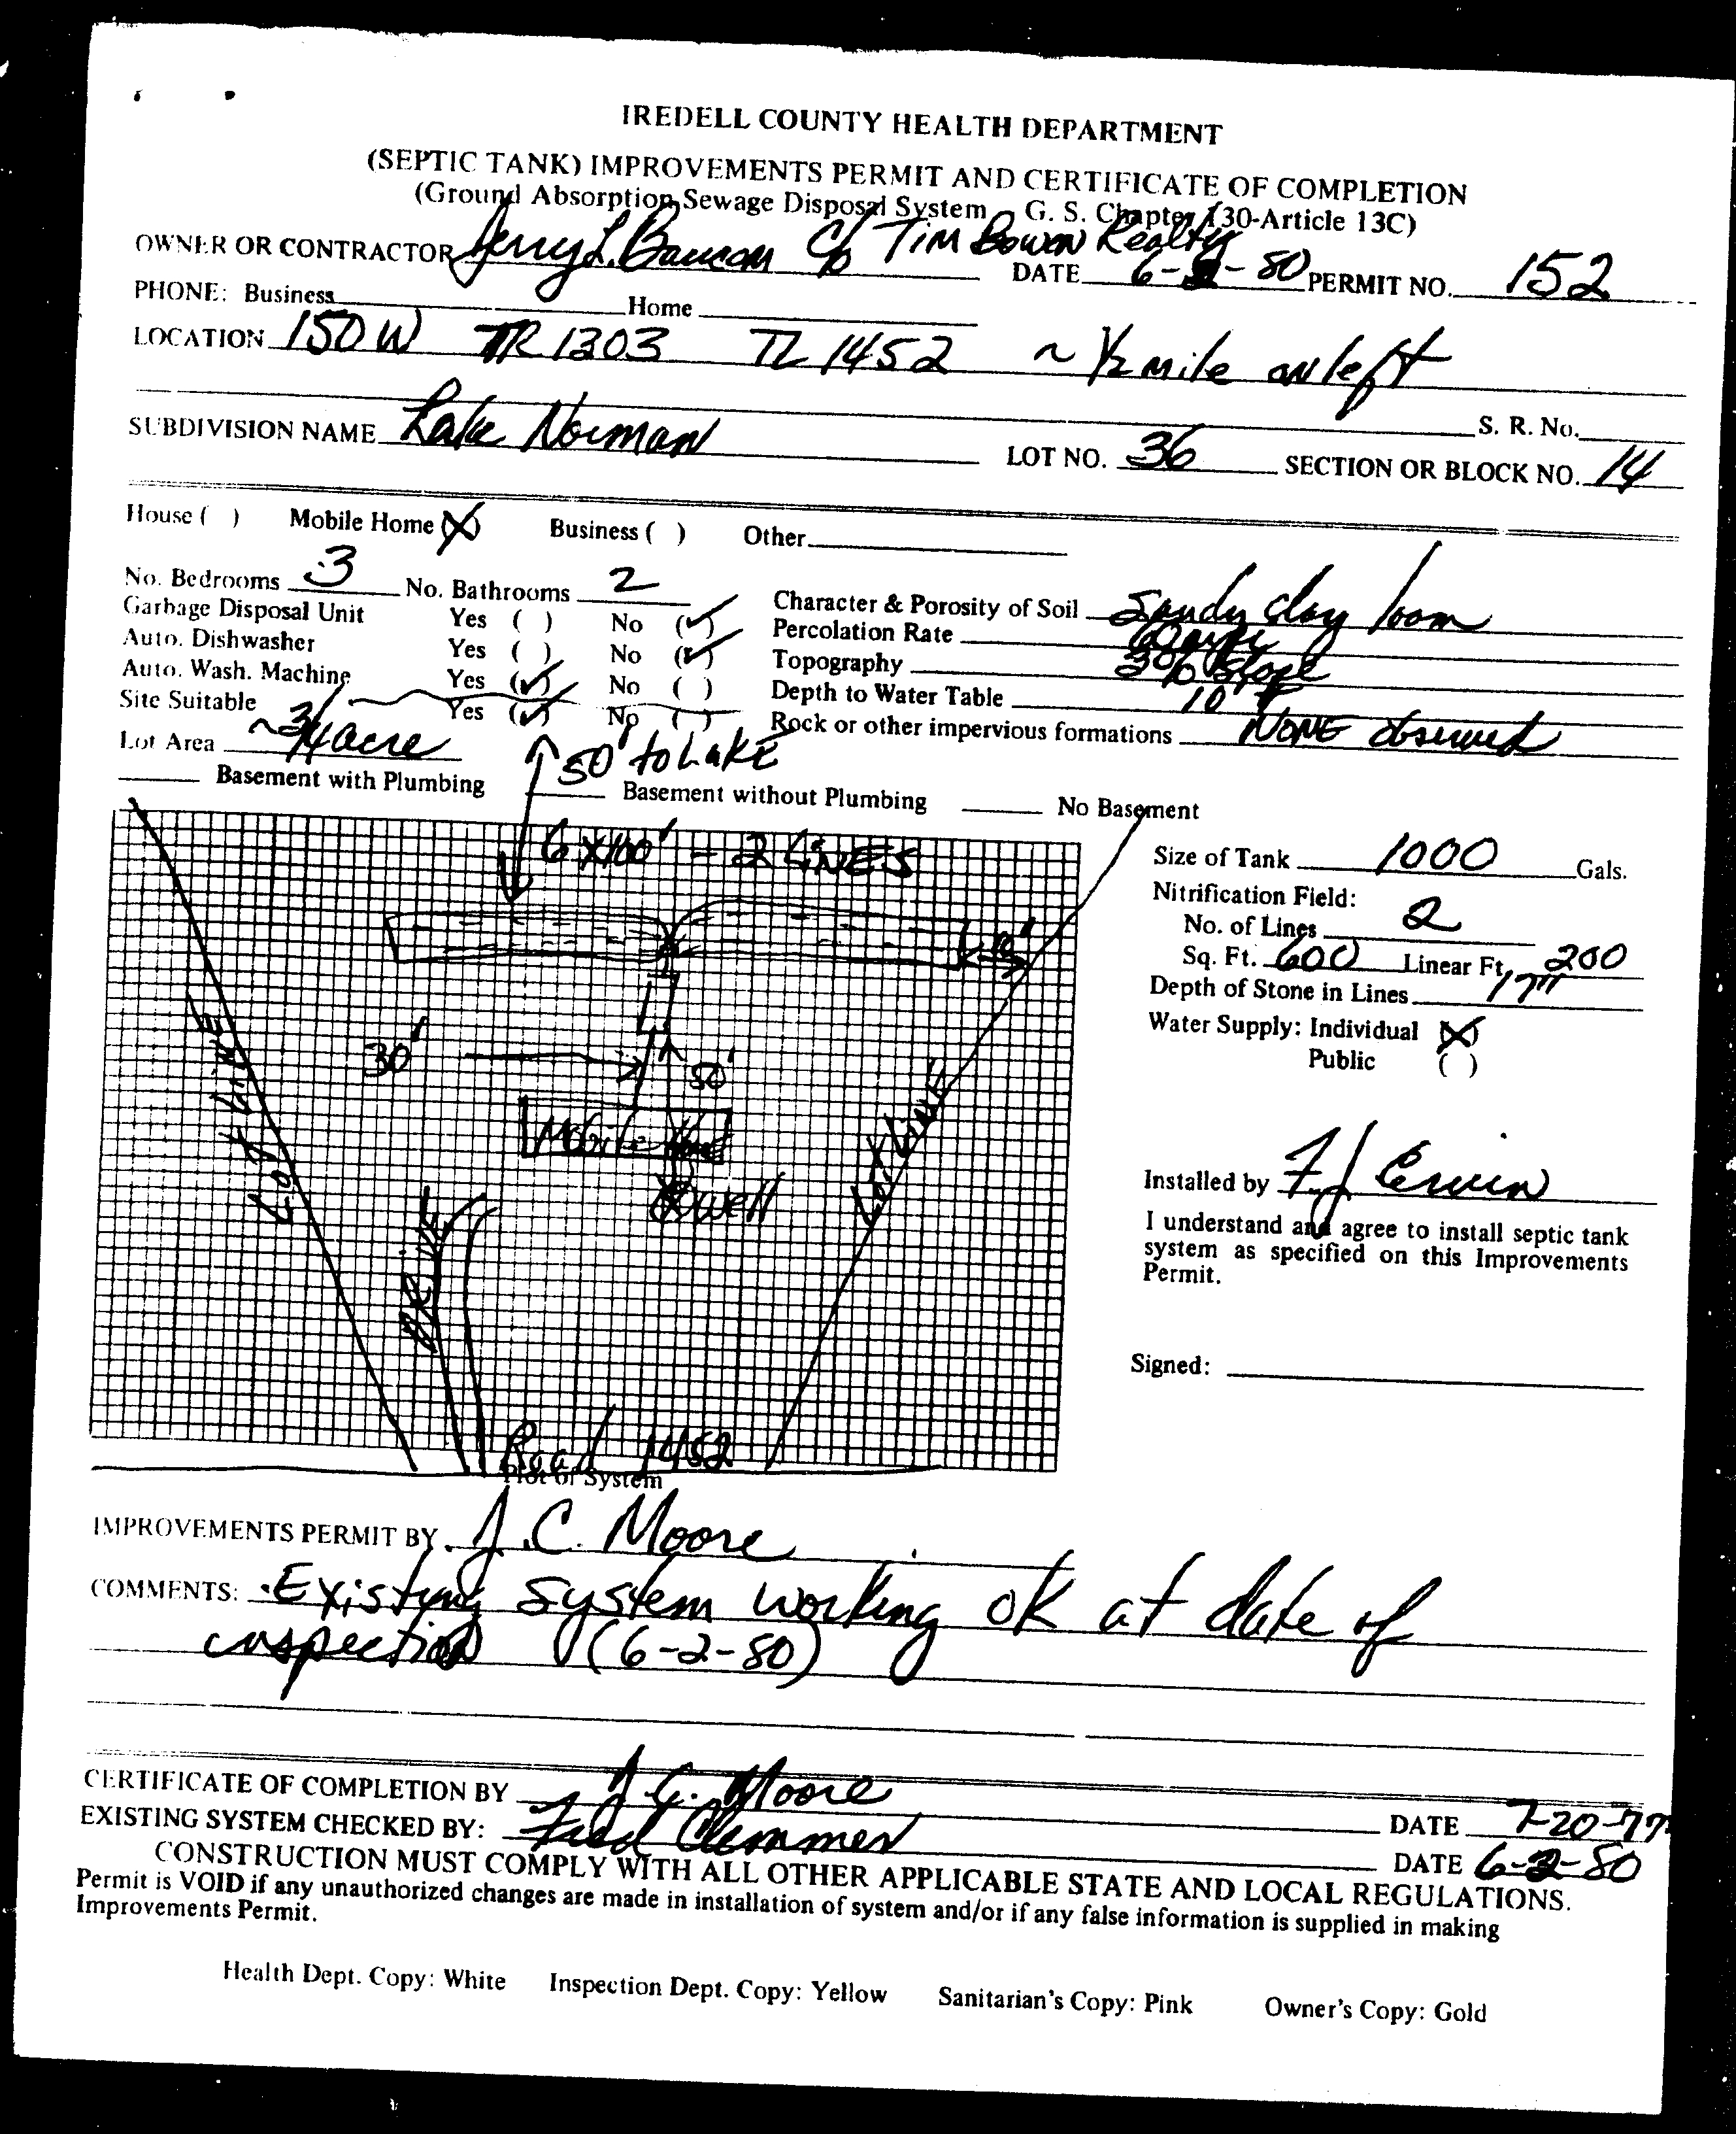 IREDELL COUNTY HEALTH DEPARTMENT
(SEPTIC TANK) IMPROVEMENTS PERMIT AND CERTIFICATE OF COMPLETION
(Ground Absorption Sewage Disposal System G. S. Chapter 130-Article 13C)
OWNER OR CONTRACTOR Jerry L. Baucom c/o Tim Bowen Realty DATE 6-2-80 PERMIT NO. 152
PHONE: Business Home
LOCATION 150 W TR 1303 TL 1452 ~ 1/2 mile on left
S. R. No.
SUBDIVISION NAME Lake Norman LOT NO. 36 SECTION OR BLOCK NO. 14
House ( ) Mobile Home (X) Business ( ) Other
No. Bedrooms 3 No. Bathrooms 2
Garbage Disposal Unit Yes ( ) No (✓)
Auto. Dishwasher Yes ( ) No (✓)
Auto. Wash. Machine Yes (✓) No ( )
Site Suitable Yes (✓) No ( )
Lot Area ~ 3/4 acre
Character & Porosity of Soil Sandy clay loam
Percolation Rate
Topography 3% slope
Depth to Water Table 10'
Rock or other impervious formations NONE observed
50' to Lake
Basement with Plumbing Basement without Plumbing No Basement
6 x 100' - 2 LINES
10'
LOT LINE
30'
50'
Mobile Home
LOT LINE
well
DRIVE
Road 1452
Plot of System
Size of Tank 1000 Gals.
Nitrification Field:
No. of Lines 2
Sq. Ft. 600 Linear Ft. 200
Depth of Stone in Lines 17"
Water Supply: Individual (X)
Public ( )
Installed by F J Erwin
I understand and agree to install septic tank
system as specified on this Improvements
Permit.
Signed:
IMPROVEMENTS PERMIT BY J.C. Moore
COMMENTS: Existing system working ok at date of
inspection (6-2-80)
CERTIFICATE OF COMPLETION BY J.C. Moore DATE 7-20-77
EXISTING SYSTEM CHECKED BY: Fred Clemmer DATE 6-2-80
CONSTRUCTION MUST COMPLY WITH ALL OTHER APPLICABLE STATE AND LOCAL REGULATIONS.
Permit is VOID if any unauthorized changes are made in installation of system and/or if any false information is supplied in making
Improvements Permit.
Health Dept. Copy: White Inspection Dept. Copy: Yellow Sanitarian's Copy: Pink Owner's Copy: Gold